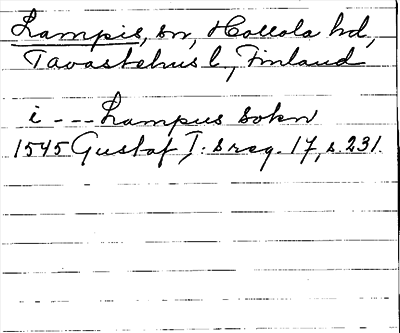 Lampis, sn, Hollola hd,
Tavastehus l, Finland
i --- Lampus sokn
1545 Gustaf I: s reg. 17, s. 231.